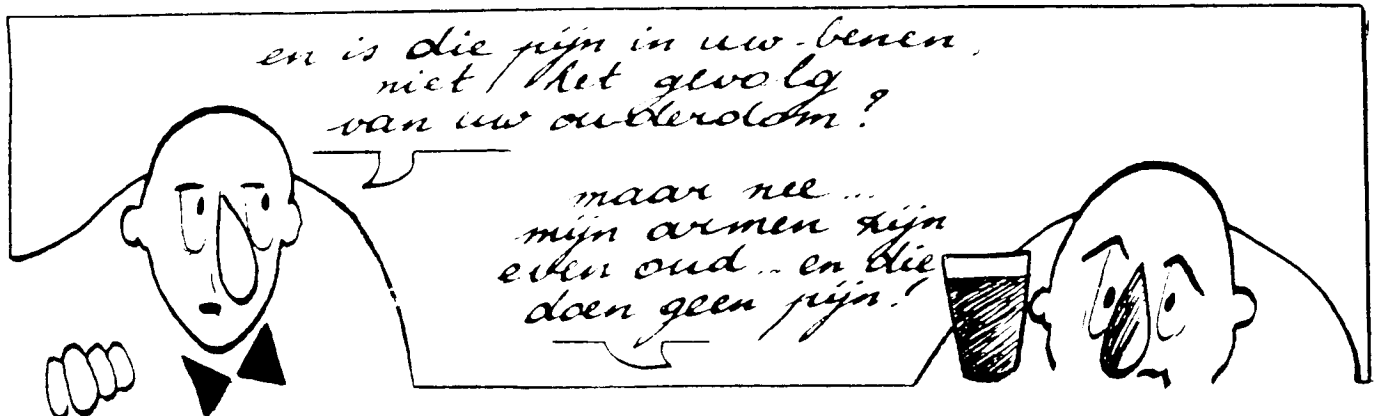 en is die pijn in uw benen,
niet het gevolg
van uw ouderdom?
maar nee...
mijn armen zijn
even oud... en die
doen geen pijn!